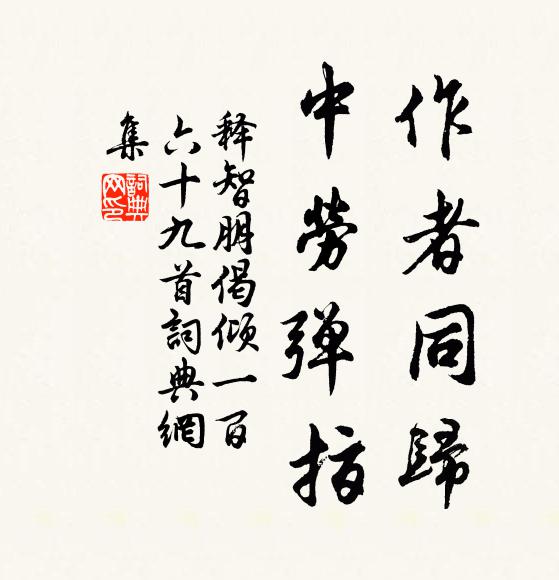 作者同歸
中勞彈指
释智朋偈傾一百
六十九首詞典網
集
詞典網印